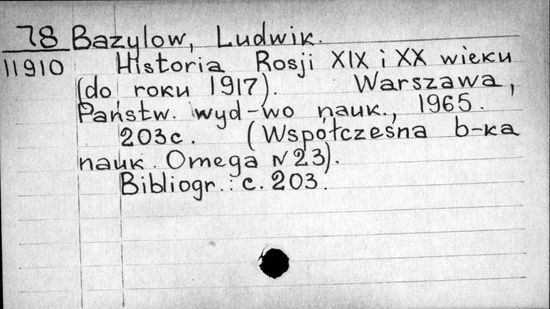 78 Bazylow, Ludwik.
11910 Historia Rosji XIX i XX wieku
(do roku 1917). Warszawa,
Państw. wyd-wo nauk., 1965.
203c. (Współczesna b-ka
nauk. Omega N 23).
Bibliogr.: c. 203.